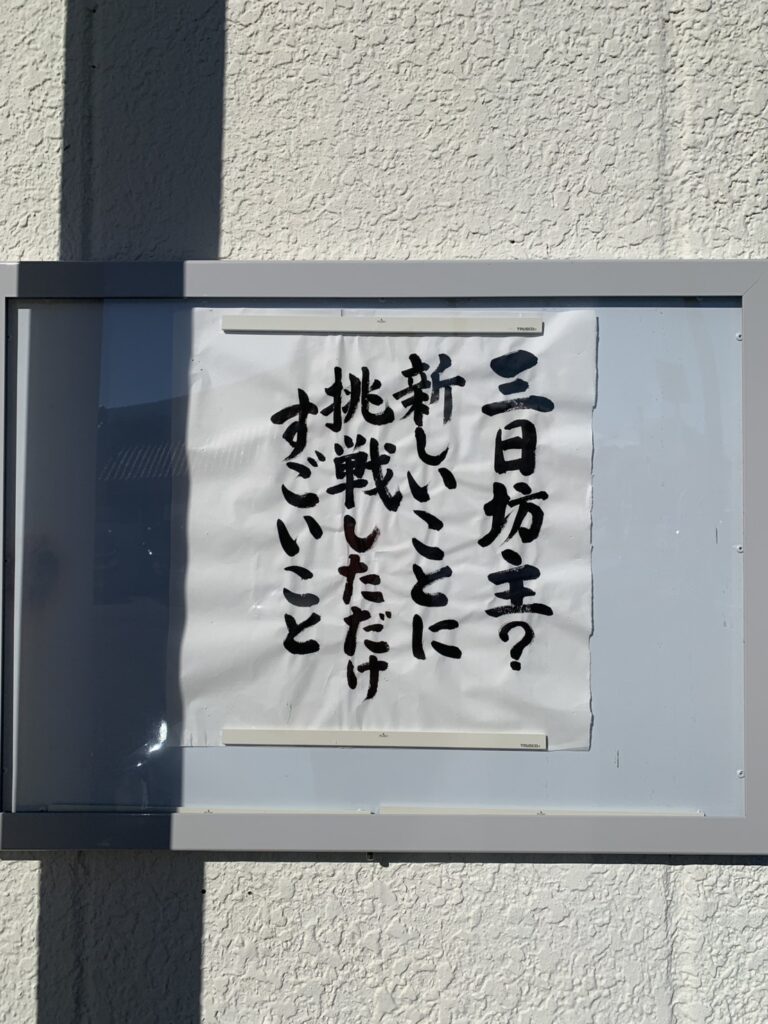 三日坊主?
新しいことに
挑戦しただけ
すごいこと
TRUSCO
TRUSCO